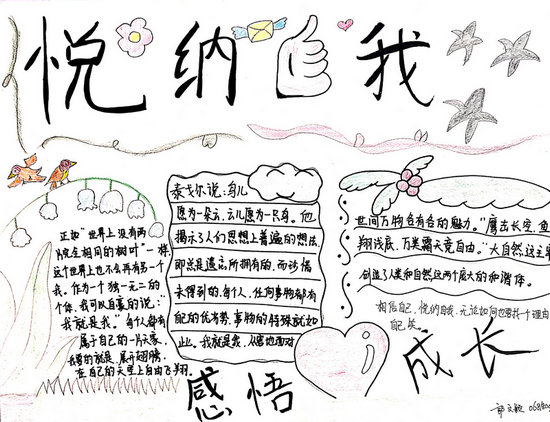 悦纳 我
正如"世界上没有两
片完全相同的树叶"一样
这个世界上也不会再有另一个
我。作为一个独一无二的
个体，我可以自豪的说：
我就是我"每个人都有
属于自己的一片天象
我要的就是，展开翅膀，
在自己的天空上自由飞翔。
泰戈尔说：鸟儿
愿为一朵云，云儿愿为一只鸟。他
揭示了人们思想上普遍的想法
即总是遗忘所拥有的，而珍惜
未得到的，每个人，任何事物都有
自己的优劣势，事物的特殊就如
此。我就是我，从容地面对
感悟
世间万物各有各的魅力。"鹰击长空，鱼
翔浅底，万类霜天竞自由。"大自然这主宰
创造了人类和自然这两个庞大的和谐体。
相信自己，悦纳自我，无论如何也要找一个理由
自己笑。
成长